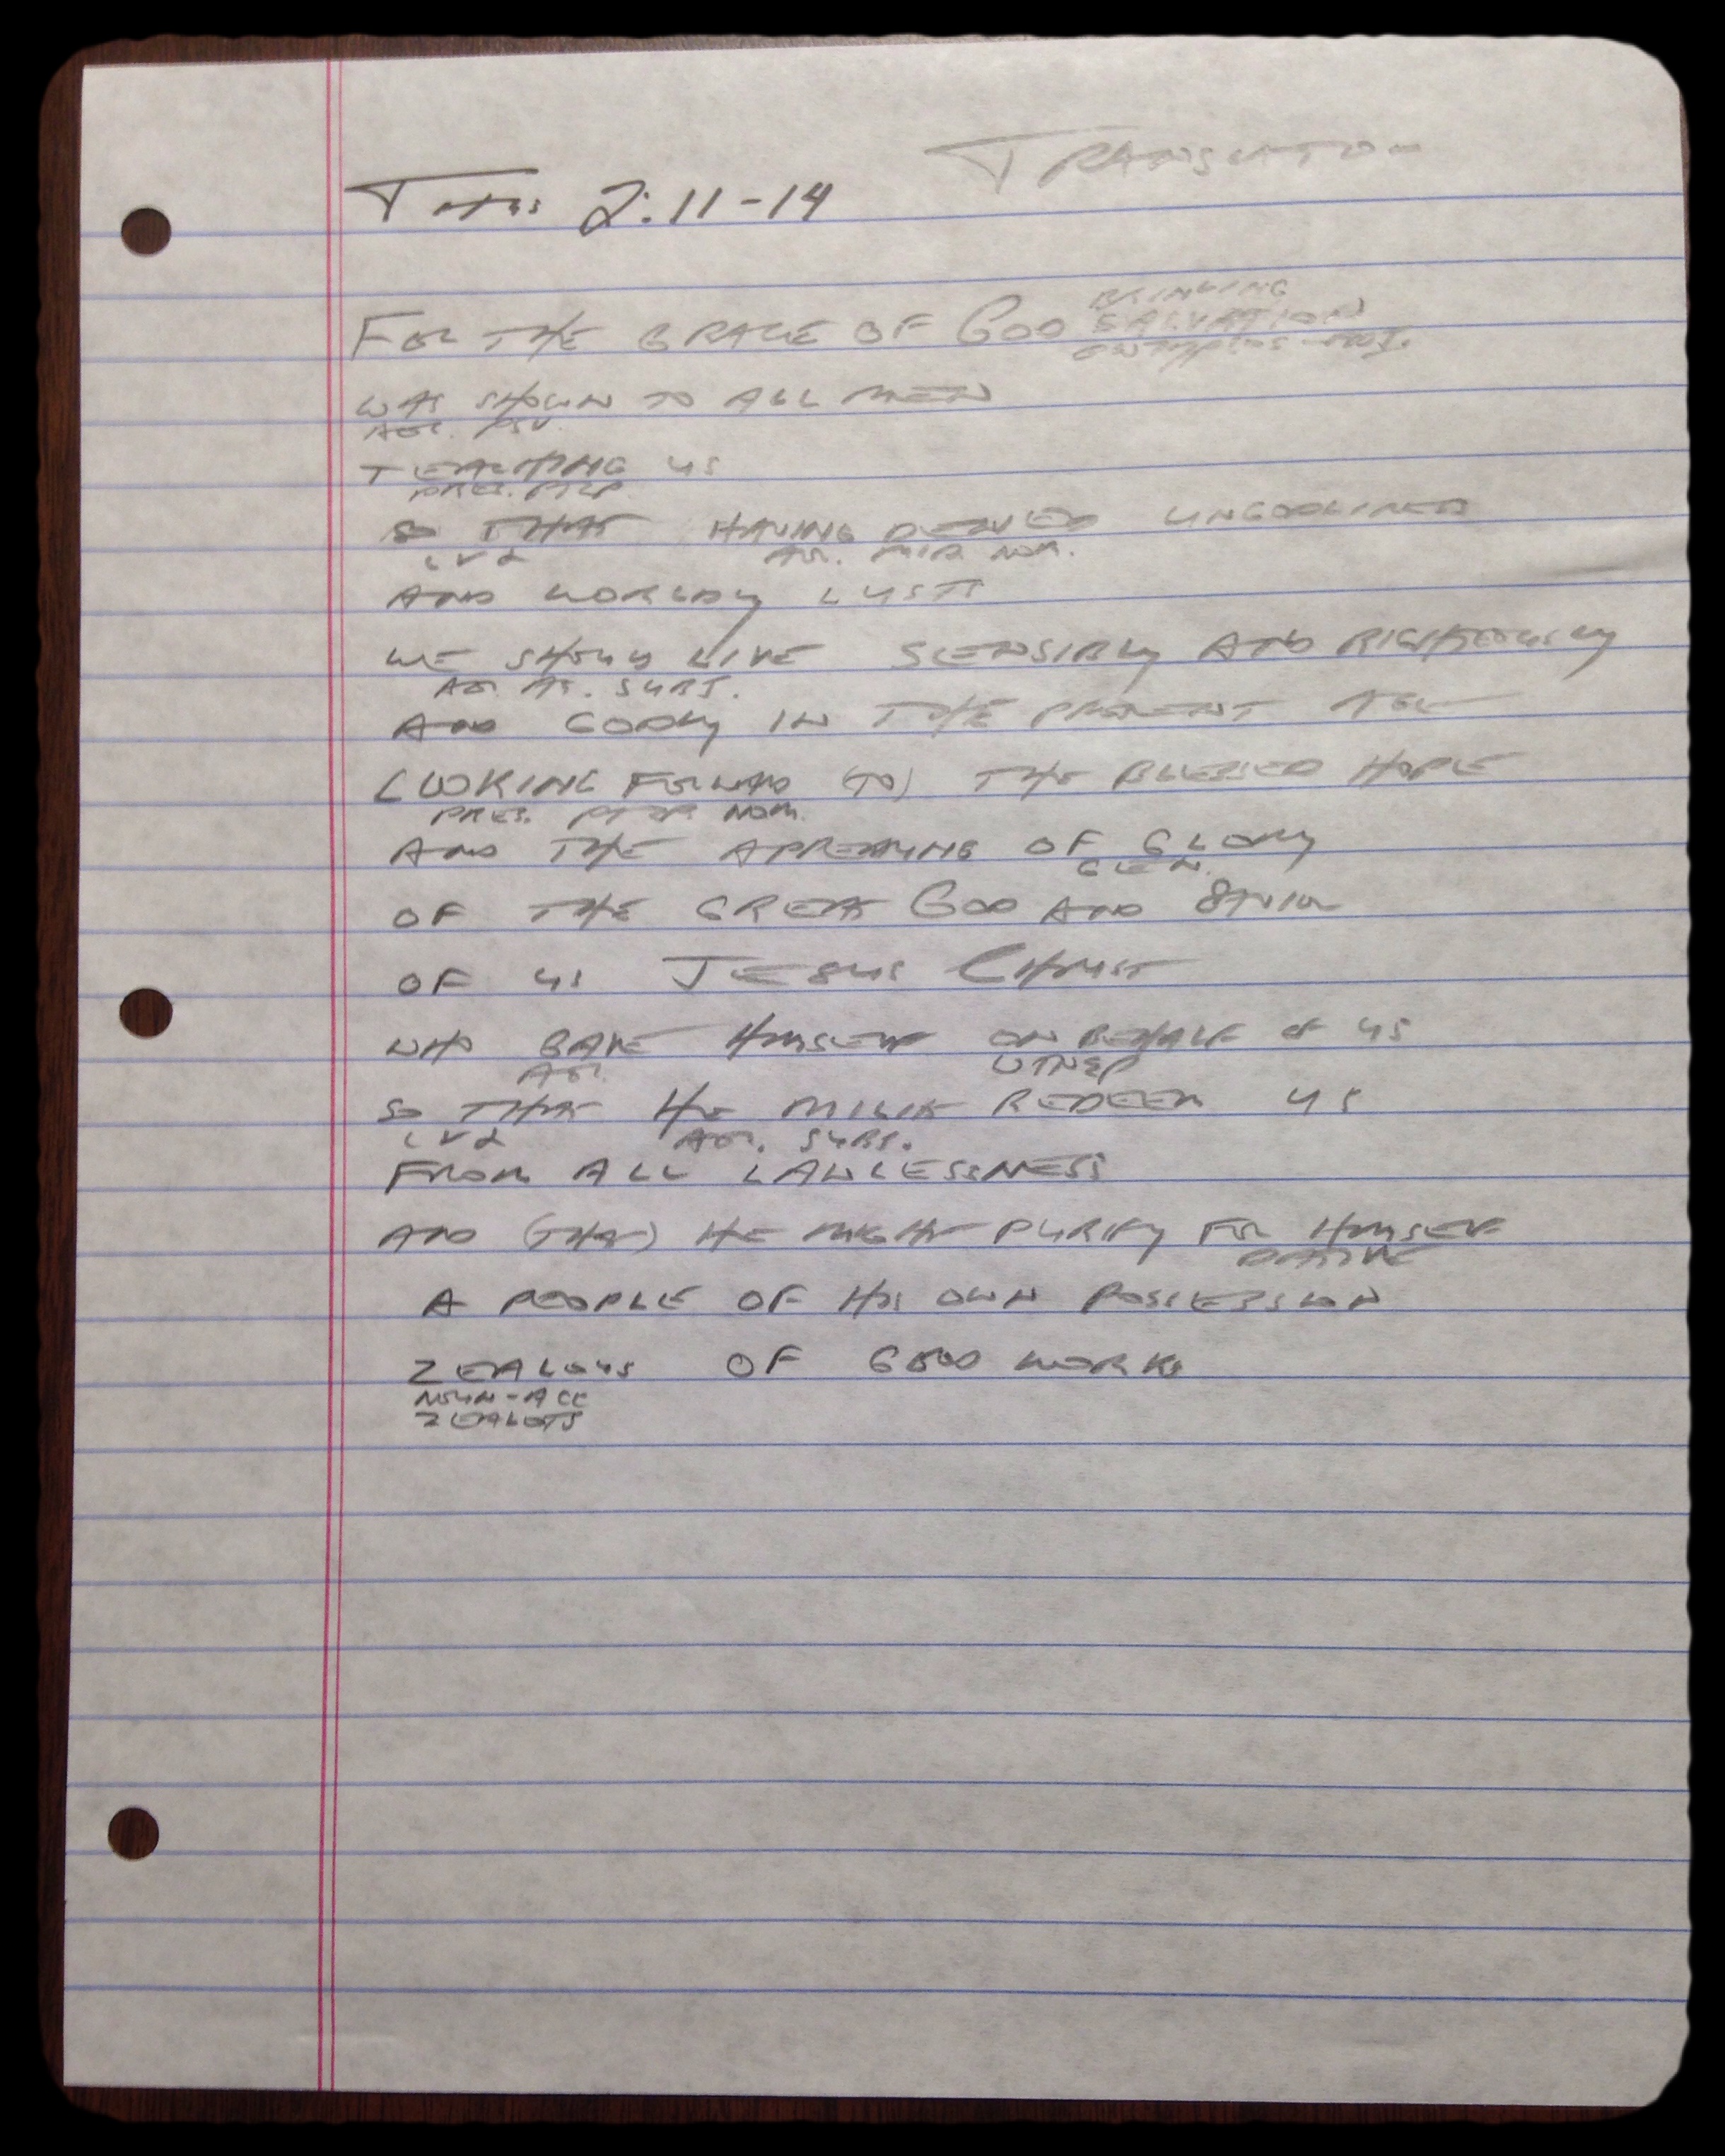 TRANSLATION
TITUS 2:11-14
BRINGING
FOR THE GRACE OF GOD SALVATION
WAS SHOWN TO ALL MEN
AOR. PSV.
TEACHING US
PRES. PTCP.
SO THAT HAVING DENIED UNGODLINESS
ινα AOR. MID. NOM.
AND WORLDLY LUSTS
WE SHOULD LIVE SENSIBLY AND RIGHTEOUSLY
AOR. AC. SUBJ.
AND GODLY IN THE PRESENT AGE
LOOKING FORWARD (TO) THE BLESSED HOPE
PRES. PTCP. NOM.
AND THE APPEARING OF GLORY
GEN.
OF THE GREAT GOD AND SAVIOR
OF US JESUS CHRIST
WHO GAVE HIMSELF ON BEHALF OF US
AOR. ΥΠΕΡ
SO THAT HE MIGHT REDEEM US
ινα AOR. SUBJ.
FROM ALL LAWLESSNESS
AND (THAT) HE MIGHT PURIFY FOR HIMSELF
DATIVE
A PEOPLE OF HIS OWN POSSESSION
ZEALOUS OF GOOD WORKS
NOUN-ACC
ZEALOTS